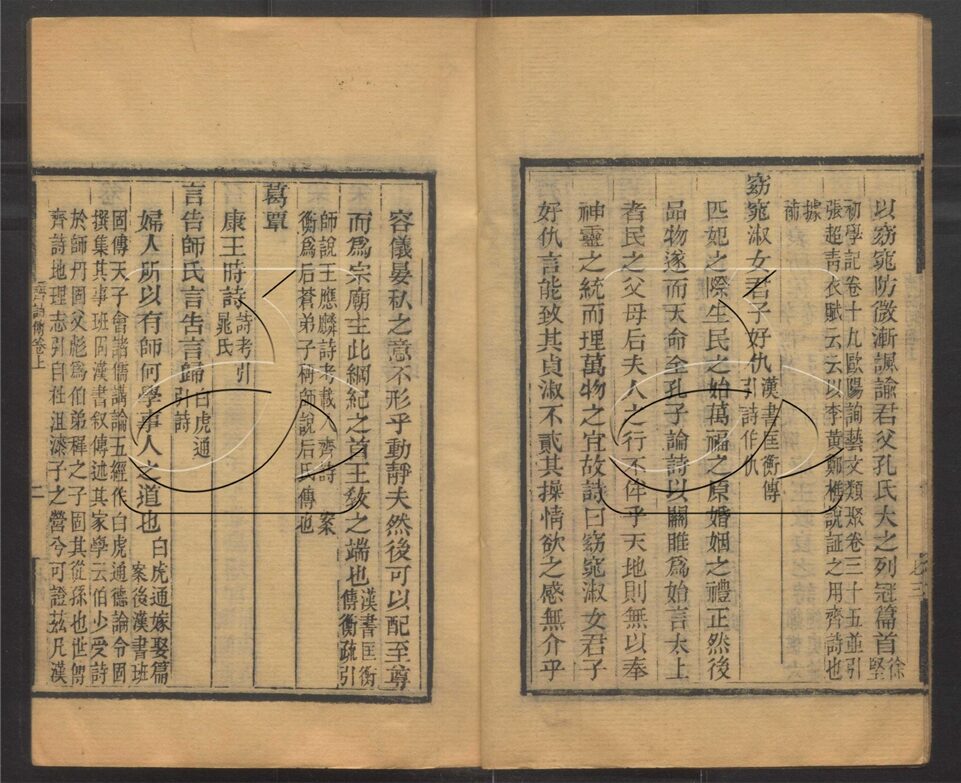 以窈窕防微漸諷諭君父孔氏大之列冠篇首徐堅
初學記卷十九歐陽詢藝文類聚卷三十五並引
張超靑衣賦云云以李黃鄭樵說証之用齊詩也
據補
窈窕淑女君子好仇漢書匡衡傳
引詩作仇
匹妃之際生民之始萬福之原婚姻之禮正然後
品物遂而天命全孔子論詩以關雎爲始言太上
者民之父母后夫人之行不侔乎天地則無以奉
神靈之統而理萬物之宜故詩曰窈窕淑女君子
好仇言能致其貞淑不貳其操情欲之感無介乎
容儀晏私之意不形乎動靜夫然後可以配至尊
而爲宗廟主此綱紀之首王敎之端也漢書匡衡
傳衡疏引
師說王應麟詩考載入齊詩 案
衡爲后蒼弟子稱師說后氏傳也
葛覃
康王時詩詩考引
鼂氏
言告師氏言告言歸白虎通
引詩
婦人所以有師何學事人之道也白虎通嫁娶篇
案後漢書班
固傳天子會諸儒講論五經作白虎通德論令固
撰集其事班固漢書叙傳述其家學云伯少受詩
於師丹固父彪爲伯弟穉之子固其從孫也世傳
齊詩地理志引自杜沮漆子之營兮可證茲凡漢
詩傳卷上
二